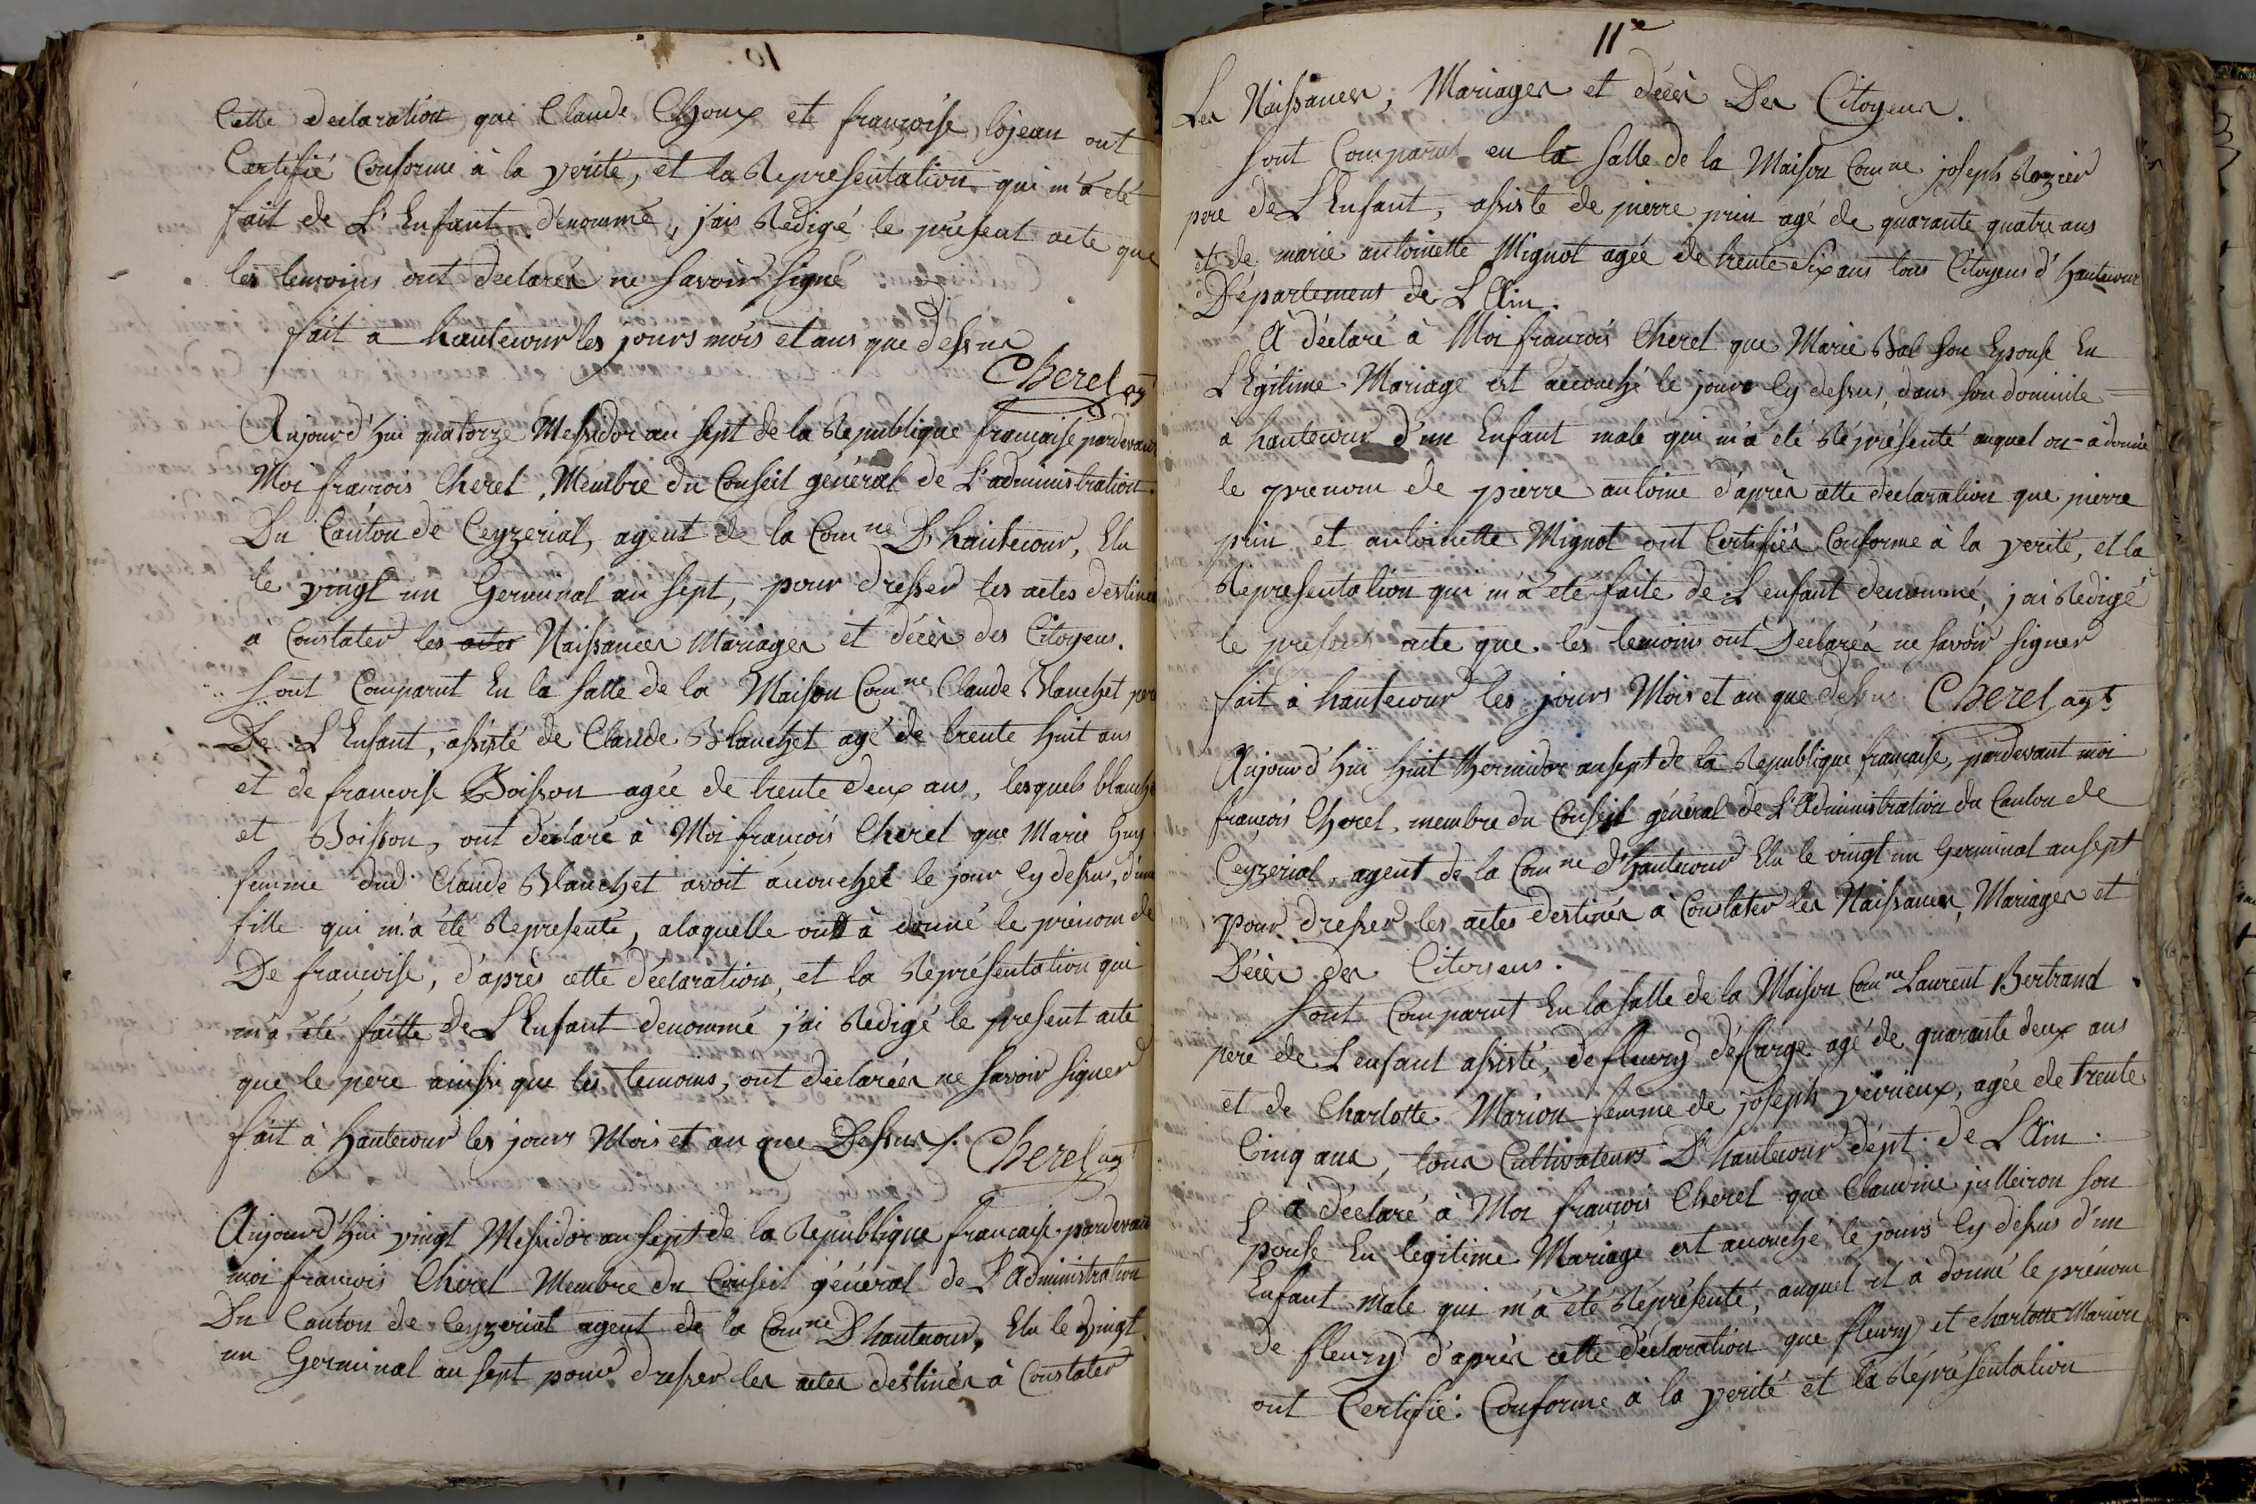 10.
Cette declaration que Claude Choux et françoise lojean ont
Certifié Conforme à la verité, et la Representation qui m'a eté
fait de L'Enfant denommé, j'ais Redigé le présent acte que
les temoins ont declarés ne savoir signé
fait a hautecour les jours mois et ans que dessus
Cherel agt
Aujourd'hui quatorze Messidor an sept de la Republique française pardevant
Moi francois Cherel, Membre du Conseil général de L'administration
Du Canton de Ceyzeriat, agent de la Comne D'hautecour, Elu
le vingt un Germinal an sept, pour dresser les actes destinés
a Constater les actes Naissances Mariages et décès des Citoyens.
Sont Comparut En la salle de la Maison Comne Claude Blanchet pere
De L'Enfant, assisté de Claude Blanchet agé de trente huit ans
et de francoise Boisson agée de trente deux ans, lesquels blanchet
et Boisson, ont déclaré à Moi francois Cherel que Marie Guy
femme dud. Claude Blanchet avoit acouchée le jour Cy dessus, d'une
fille qui m'a été Representé, alaquelle ont à donné le prénom de
De francoise, d'après cette déclaration, et la Représentation qui
m'a été faitte de L'Enfant denommé j'ai Redigé le present acte
que le pere ainsi que les temoins, ont déclarés ne savoir signer
fait à Hautecour les jours Mois et an que Dessus /. Cherel agt
Aujourd'hui vingt Messidor an sept de la Republique francaise pardevant
moi francois Cherel Membre du Conseil général de L'Administration
Du Canton de Ceyzeriat agent de la Comne D'hautecour, Elu le vingt
un Germinal an sept pour dresser les actes destinés à Constater
11e
Les Naissances, Mariages et décès Des Citoyens.
Sont Comparut en la salle de la Maison Comne joseph Rozier
pere de L'Enfant, assiste de pierre prin agé de quarante quatre ans
et de marie antoinette Mignot agée de trente six ans tous Citoyens d'hautecour
Département de L'Ain.
A déclaré à Moi francois Cherel que Marie Bal son Epouse En
L'Egitime Mariage est acouché le jours Cy dessus, dans son domicile
à hautecour d'un Enfant male qui m'a été Réprésenté auquel on a donné
le prenom de pierre antoine d'après cette declaration que pierre
prin et antoinette Mignot ont Certifiés Conforme à la verité, et la
Representation qui m'a été faite de L'enfant denommé, j'ai Redigé
le present acte que les temoins ont Declarés ne savoir signer
fait à hautecour les jours Mois et an que dessus Cherel agt
Aujourd'hui huit thermidor an sept de la Republique francaise, pardevant moi
françois Cherel, membre du Conseil général de L'Administration du Canton de
Ceyzeriat, agent de la Comne d'hautecour Elu le vingt un Germinal an sept
pour dresser les actes destinés à Constater les Naissances, Mariages et
Décès des Citoyens.
Sont Comparut En la salle de la Maison Comne Laurent Bertrand
pere de L'enfant assisté, de fleury défarge agé de quarante deux ans
et de Charlotte Marion femme de joseph vévrieux, agée de trente
Cinq ans, tous Cultivateurs D'hautecour dépt. de L'Ain.
A déclaré à Moi francois Cherel que Claudine julleiron son
Epouse En legitime Mariage est acouché le jours Cy dessus d'un
Enfant Male qui m'a été Réprésenté, auquel il à donné le prénom
de fleury d'après cette déclaration que fleury et charlotte Marion
ont Certifié Conforme à la verité et la Réprésentation